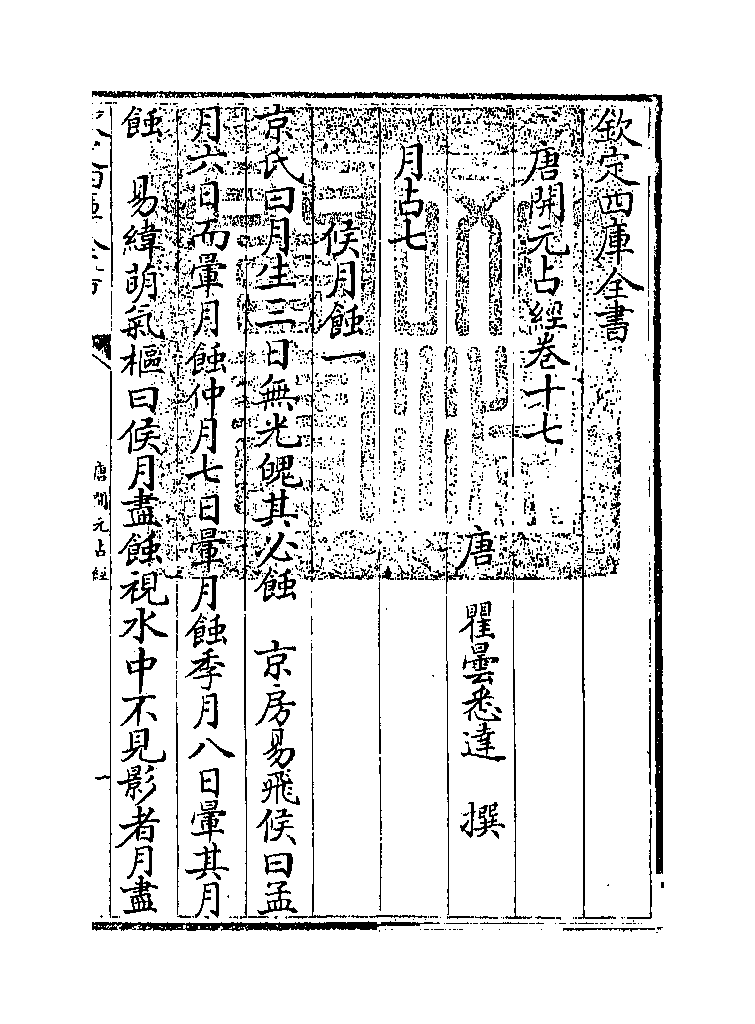 欽定四庫全書
唐開元占經卷十七
唐 瞿曇悉達 撰
月占七
候月蝕一
京氏曰月生三日無光魄其必蝕 京房易飛候曰孟
月六日而暈月蝕仲月七日暈月蝕季月八日暈其月
蝕 易緯萌氣樞曰候月盡蝕視水中不見影者月盡
唐開元占經
一